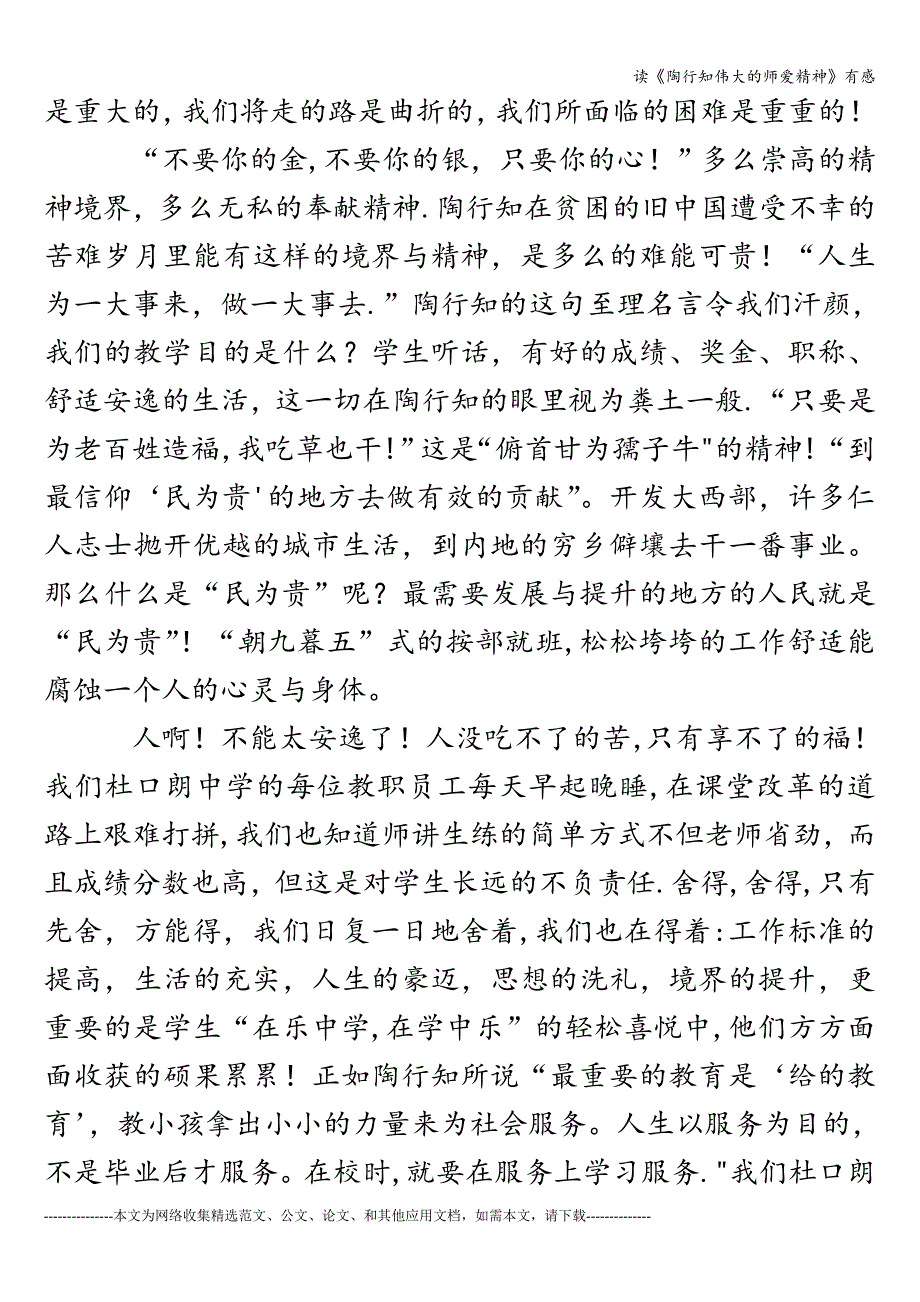 读《陶行知伟大的师爱精神》有感
是重大的,我们将走的路是曲折的,我们所面临的困难是重重的!
“不要你的金,不要你的银，只要你的心！”多么崇高的精
神境界，多么无私的奉献精神.陶行知在贫困的旧中国遭受不幸的
苦难岁月里能有这样的境界与精神，是多么的难能可贵！“人生
为一大事来，做一大事去.”陶行知的这句至理名言令我们汗颜，
我们的教学目的是什么？学生听话，有好的成绩、奖金、职称、
舒适安逸的生活，这一切在陶行知的眼里视为粪土一般.“只要是
为老百姓造福,我吃草也干!”这是“俯首甘为孺子牛"的精神!“到
最信仰‘民为贵'的地方去做有效的贡献”。开发大西部，许多仁
人志士抛开优越的城市生活，到内地的穷乡僻壤去干一番事业。
那么什么是“民为贵”呢？最需要发展与提升的地方的人民就是
“民为贵”！“朝九暮五”式的按部就班,松松垮垮的工作舒适能
腐蚀一个人的心灵与身体。
人啊！不能太安逸了！人没吃不了的苦,只有享不了的福！
我们杜口朗中学的每位教职员工每天早起晚睡,在课堂改革的道
路上艰难打拼,我们也知道师讲生练的简单方式不但老师省劲，而
且成绩分数也高，但这是对学生长远的不负责任.舍得,舍得,只有
先舍，方能得，我们日复一日地舍着,我们也在得着:工作标准的
提高，生活的充实，人生的豪迈，思想的洗礼，境界的提升，更
重要的是学生“在乐中学,在学中乐”的轻松喜悦中,他们方方面
面收获的硕果累累！正如陶行知所说“最重要的教育是‘给的教
育’，教小孩拿出小小的力量来为社会服务。人生以服务为目的，
不是毕业后才服务。在校时,就要在服务上学习服务."我们杜口朗
---------------本文为网络收集精选范文、公文、论文、和其他应用文档，如需本文，请下载--------------